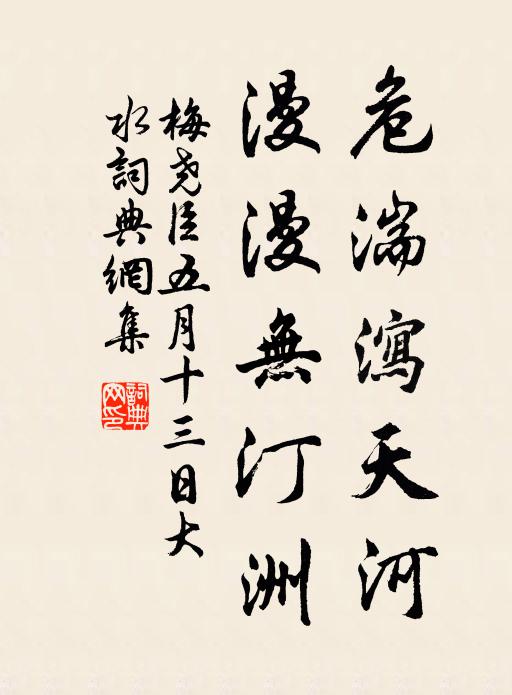 危湍瀉天河
漫漫無汀洲
梅堯臣五月十三日大
水詞典網集
詞典網印